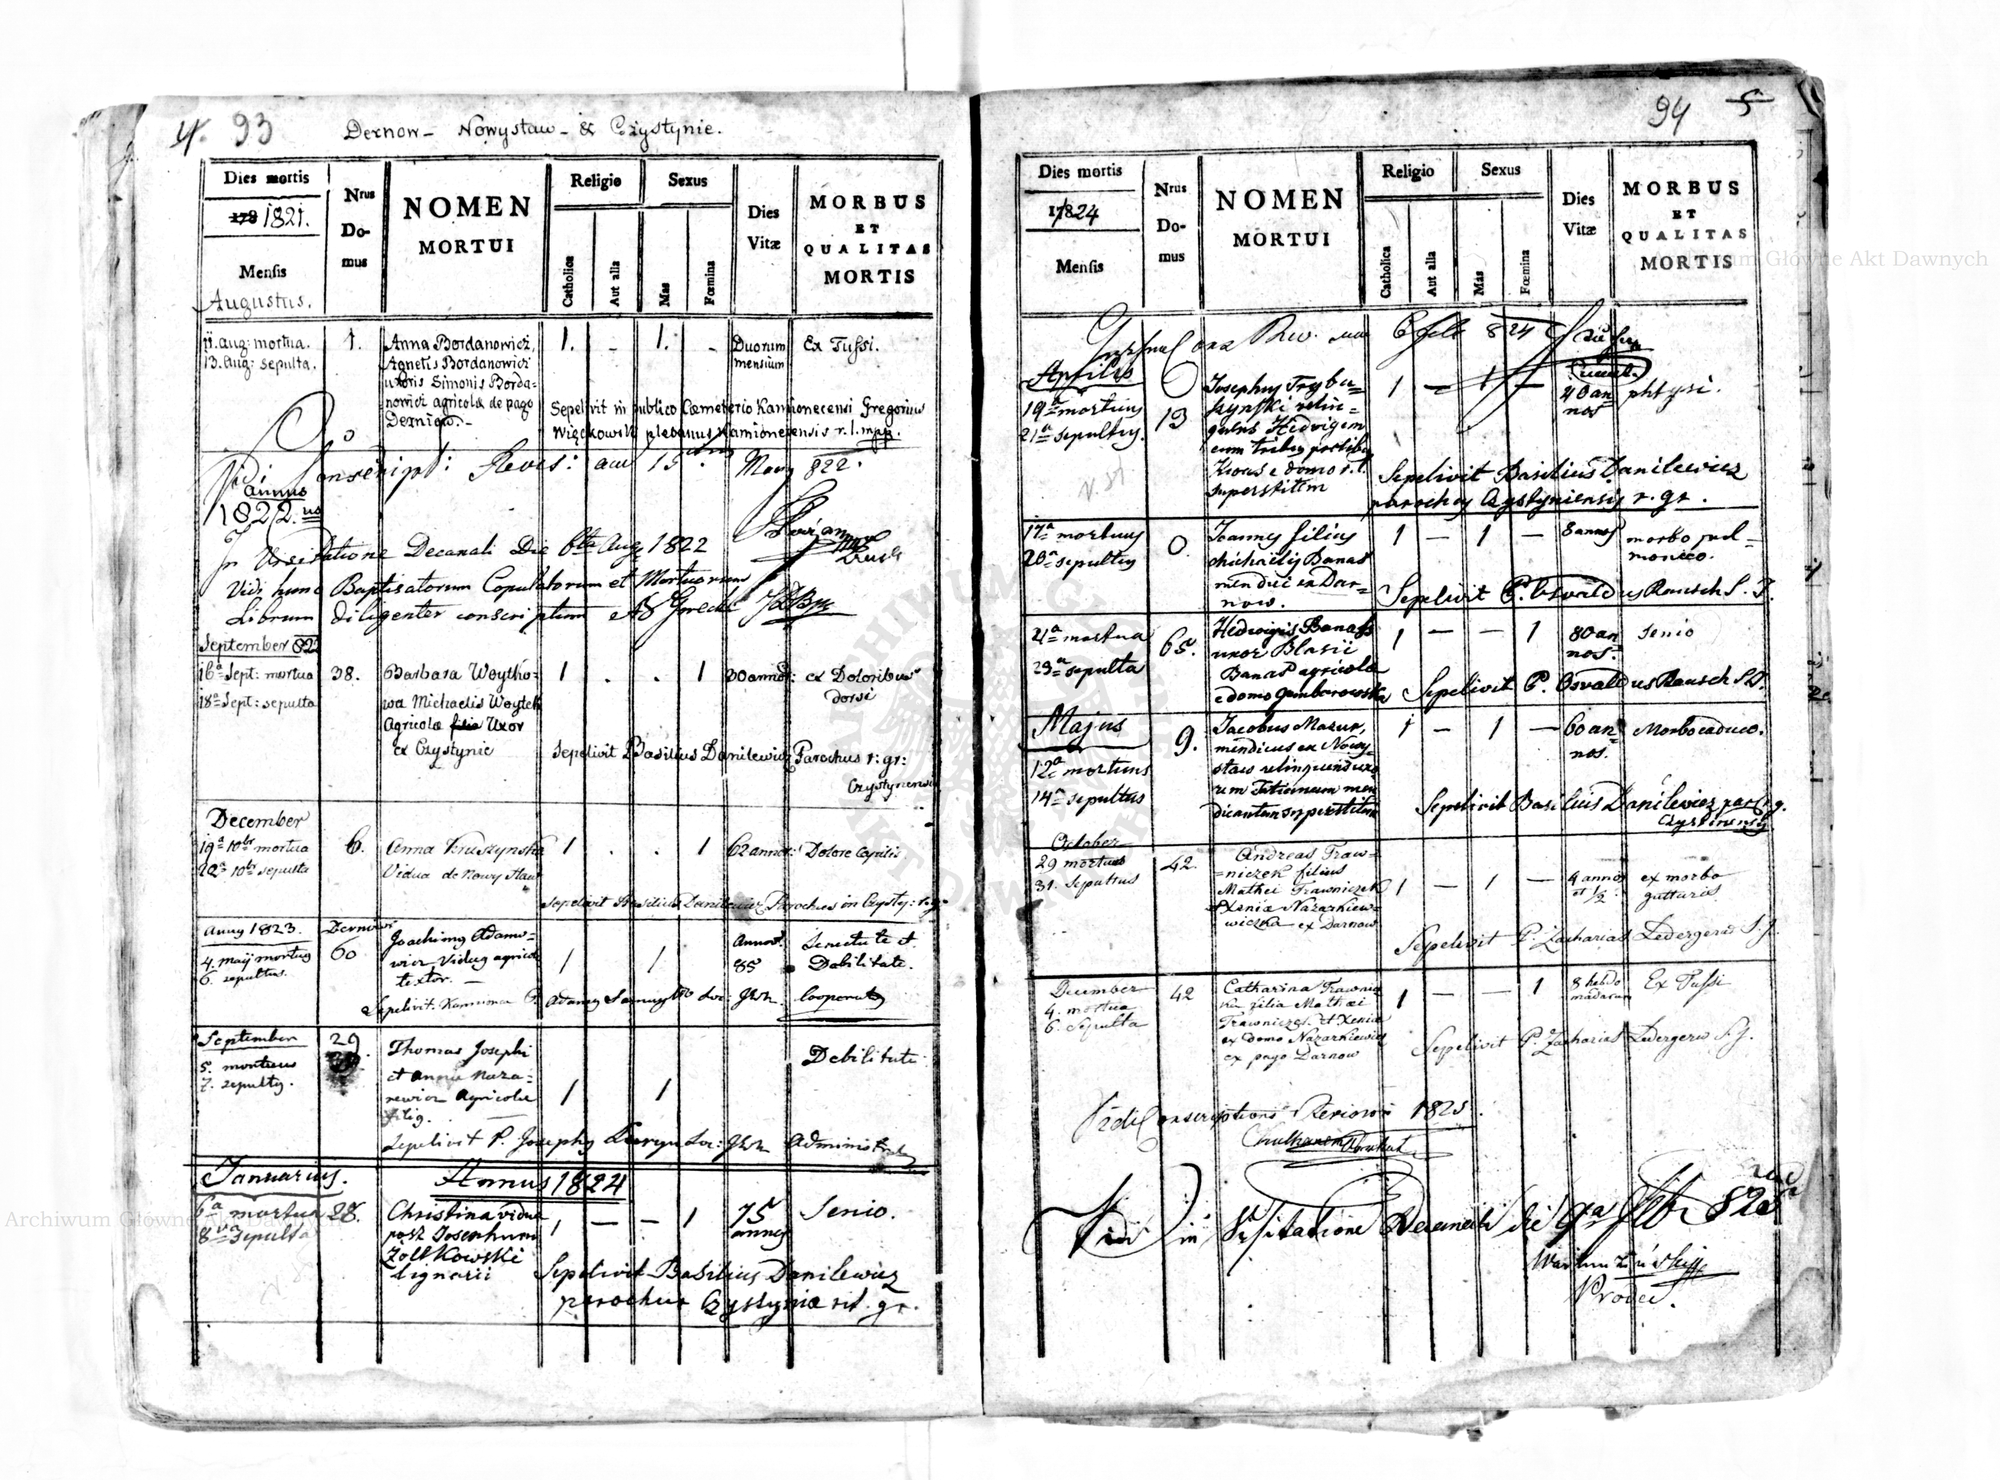 4. 93
Dernow - Nowystaw - & Czystynie.
Dies mortis
178 1821.
Mensis
Augustus.
Nrus
Do-
mus
NOMEN
MORTUI
Religio
Catholica
Aut alia
Sexus
Mas
Fœmina
Dies
Vitæ
MORBUS
ET
QUALITAS
MORTIS
11. aug: mortua. 1. Anna Bordanowicz, 1. - 1. - Duorum Ex Tussi.
13. aug: sepulta. Agnetis Bordanowicz mensium
uxoris Simonis Borda-
nowicz agricolæ de pago
Derniow.-
Sepelivit in publico Cœmeterio Kamionecensi Gregorius
Więckowski plebanus Kamionecensis r. l. mpp.
Vidi Conscript: Revis: 15 May 822.
annus
1822.us
In Visitatione Decanali Die 6ta Aug 1822
Vidi hunc Baptisatorum Copulatorum et Mortuorum
Librum diligenter conscriptum
September 822
16a Sept: mortua 38. Barbara Woytko- 1 . . 1 30 annor: ex Doloribus
18a Sept: sepulta wa Michaelis Woytek dorsi
Agricolæ filia Uxor
ex Czystynie
Sepelivit Basilius Danilewicz Parochus r: gr:
Czystynensis
December
19a 10bris mortua 6. Anna Kruszynska 1 . . 1 62 annor: Dolore Capitis
20a 10bris sepulta Vidua de Nowy Staw
Sepelivit Basilius Danilewicz Parochus in Czysty: r. g.
Anny 1823. Dernow
4. maij mortuus 60 Joachimus Adamo- 1 1 Annor. Senectute et
6. sepultus. wicz Viduus agricola 85 Debilitate.
textor. -
Sepelivit. Kamionca P. Adamus Cooperator
September 29
5. mortuus Thomas Josephi 1 1 Debilitate
7. sepultus. et Anna Naza-
rewicz Agricolæ
filius.
Sepelivit P. Josephus Administrator
Januarius. Annus 1824
6a mortua 28. Christina vidua 1 - - 1 75 Senio.
8va sepulta post Josephum annos
Zolkowski
lignarii
Sepelivit Basilius Danilewicz
parochus Czystyniæ rit. gr.
94 5
Dies mortis
17824
Mensis
Nrus
Do-
mus
NOMEN
MORTUI
Religio
Catholica
Aut alia
Sexus
Mas
Fœmina
Dies
Vitæ
MORBUS
ET
QUALITAS
MORTIS
6 Feb 824
Aprilis
19a mortuus 13 Josephus Tryba- 1 - 1 - 40 an- phtysi.
21a sepultus. szynski relin- nos
quens Hedvigem
cum tribus prolibus
superstitem
Sepelivit Basilius Danilewicz
parochus Czystyniensis r. gr.
17a mortuus 0. Joannes filius 1 - 1 - 8 annos morbo pul-
20a sepultus Michaelis Banas monico.
mendici ex Dar-
now.
Sepelivit P. Osvaldus Rausch S. J.
21a mortua 65. Hedwigis Banass 1 - - 1 80 an- senio
23a sepulta uxor Blasii nos.
Banas agricola
e domo Gamborowska
Sepelivit P. Osvaldus Rausch S.J.
Majus
12a mortuus 9. Jacobus Mazur, 1 - 1 - 60 an- Morbo caduco.
14a sepultus mendicus ex Nowy- nos.
staw
superstitem
Sepelivit Basilius Danilewicz par. r. g.
Czystinensis
October
29 mortuus 42. Andreas Traw- 1 - 1 - 4 annor ex morbo
31. Sepultus niczek filius et 1/2 gutturis
Mathei Trawniczek
Xeniæ Nazarkiew-
wiczka ex Darnow
Sepelivit P. Zacharias Ledergerw S. J.
December 42 Catharina Trawnic 1 - - 1 8 hebdo Ex Tussi
4. mortua ka filia Mathæi madarum
6. Sepulta Trawniczek et Xenia
ex domo Nazarkiewicz
ex pago Darnow
Sepelivit P. Zacharias Ledergerw S. J.
Vidi Conscriptions Revisor 1825.
Vidi in Visitatione Decanali die 9a Feb 825
Prodec.
Archiwum Główne Akt Dawnych